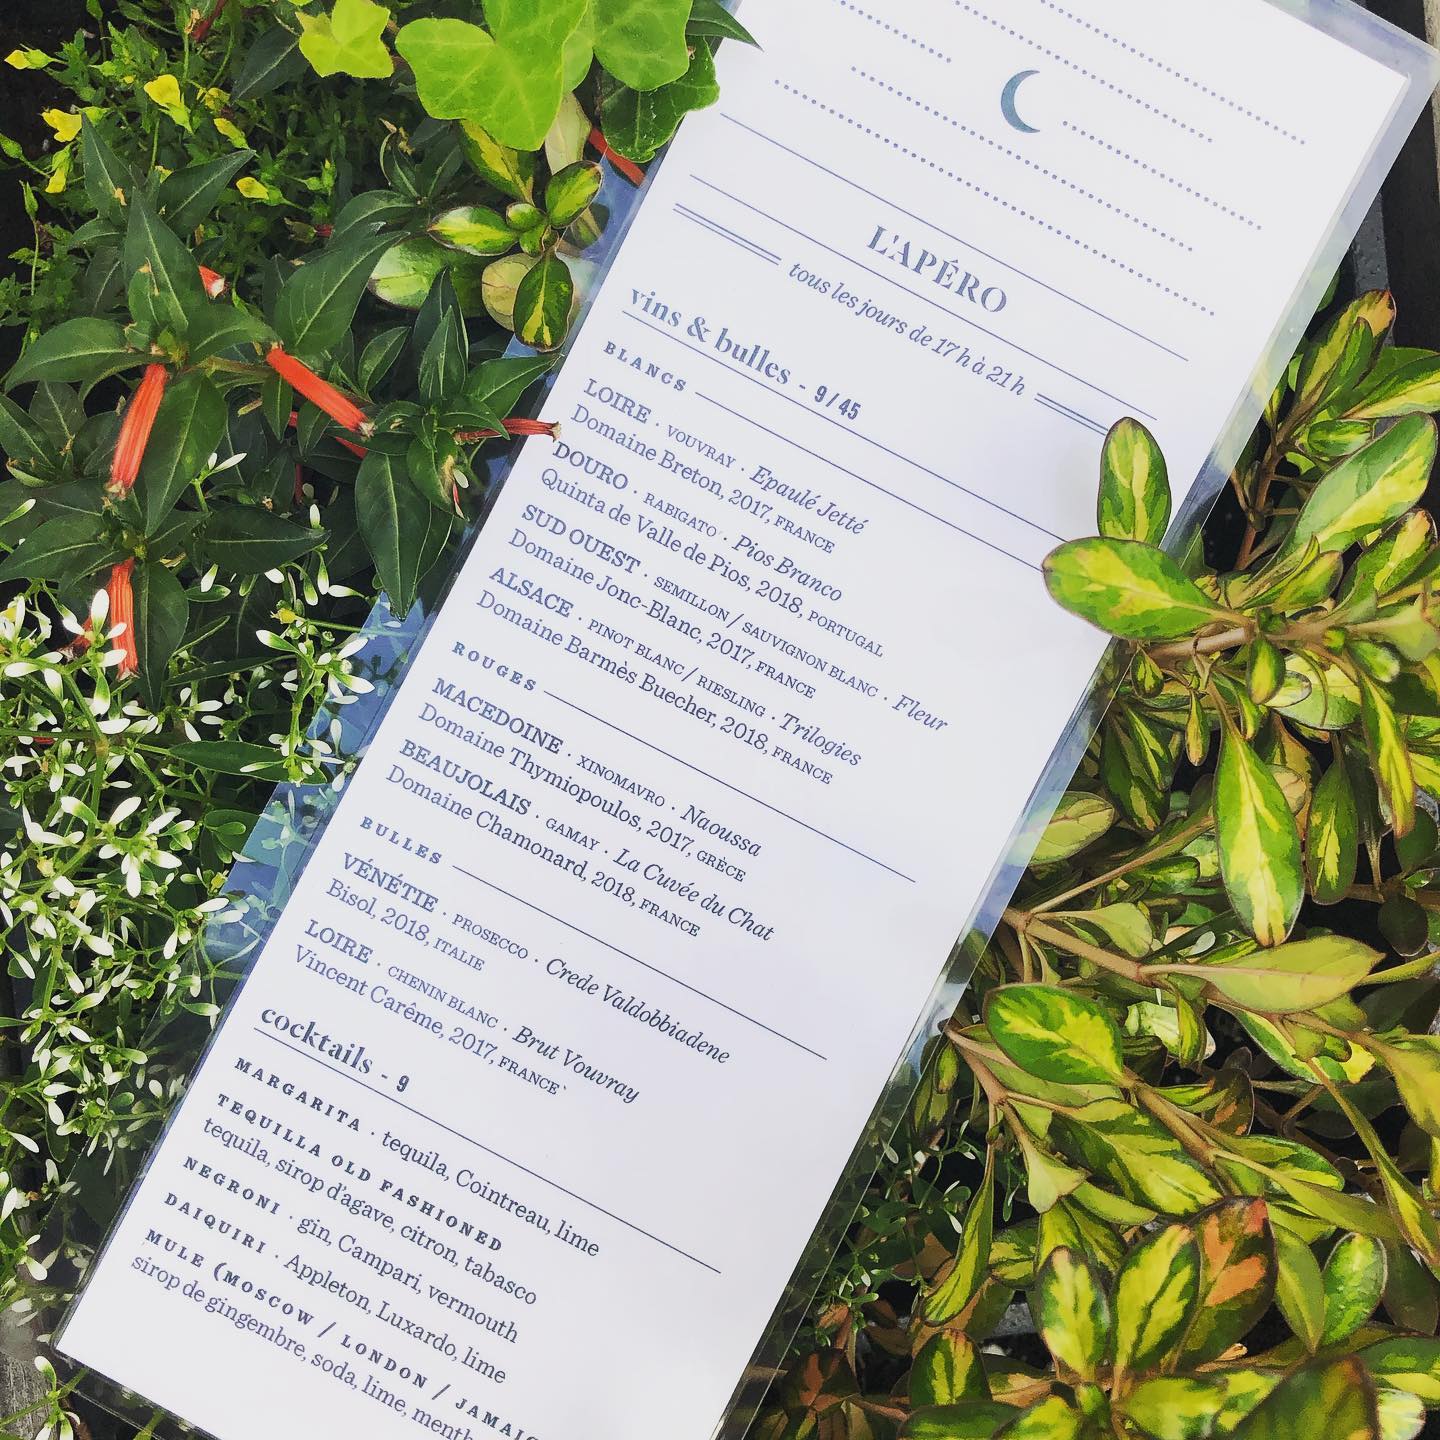 L'APÉRO
tous les jours de 17 h à 21 h
vins & bulles - 9/45
BLANCS
LOIRE · VOUVRAY · Epaulé Jetté
Domaine Breton, 2017, FRANCE
DOURO · RABIGATO · Pios Branco
Quinta de Valle de Pios, 2018, PORTUGAL
SUD OUEST · SEMILLON / SAUVIGNON BLANC · Fleur
Domaine Jonc-Blanc, 2017, FRANCE
ALSACE · PINOT BLANC / RIESLING · Trilogies
Domaine Barmès Buecher, 2018, FRANCE
ROUGES
MACEDOINE · XINOMAVRO · Naoussa
Domaine Thymiopoulos, 2017, GRÈCE
BEAUJOLAIS · GAMAY · La Cuvée du Chat
Domaine Chamonard, 2018, FRANCE
BULLES
VÉNÉTIE · PROSECCO · Crede Valdobbiadene
Bisol, 2018, ITALIE
LOIRE · CHENIN BLANC · Brut Vouvray
Vincent Carême, 2017, FRANCE`
cocktails - 9
MARGARITA · tequila, Cointreau, lime
TEQUILLA OLD FASHIONED
tequila, sirop d'agave, citron, tabasco
NEGRONI · gin, Campari, vermouth
DAIQUIRI · Appleton, Luxardo, lime
MULE (MOSCOW / LONDON /
sirop de gingembre, soda, lime,